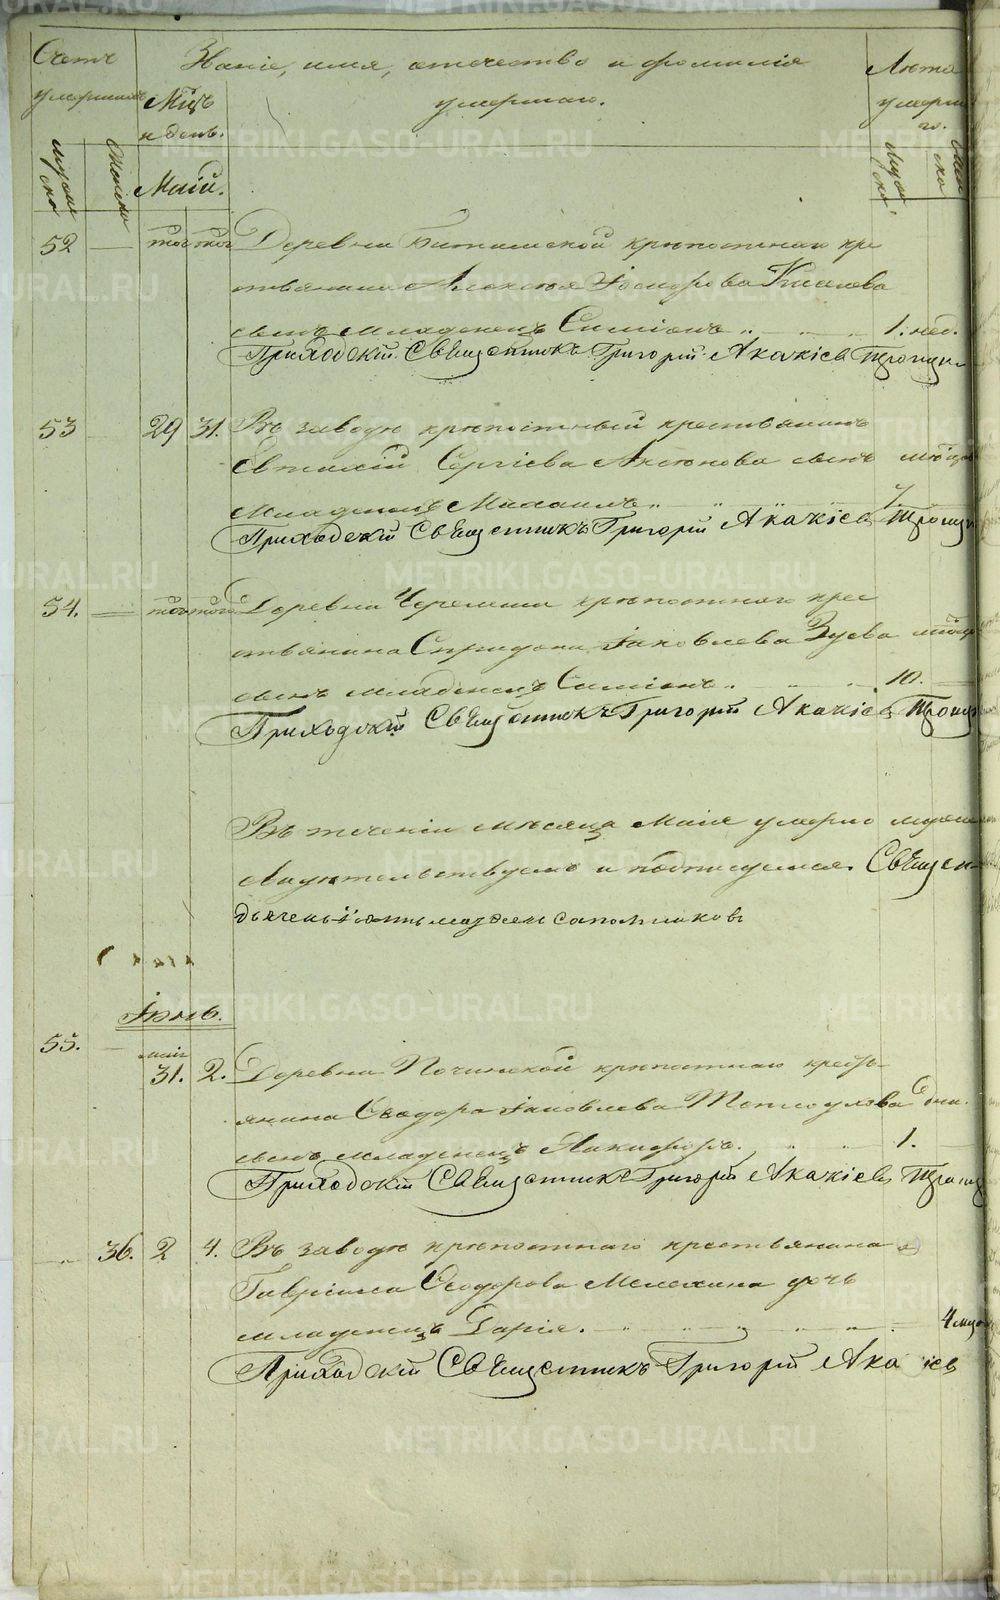 Счетъ умершихъ
Мцъ и день.
Званіе, имя, отечество и фамилія умершаго.
Лѣта умершаго.
мужска
женска
Маій.
мужска
женска
52 — той той Деревни крѣпостнаго кре
стьянина Алексѣя Ѳеодорова Киселева
сынъ младенецъ Симіонъ 1. нед.
Приходскій Священникъ Григорій Акакіевъ
53 29 31. Въ заводѣ крѣпостный крестьянинъ
Евтихій Сергіева Аксюнова сынъ
младенецъ Михаилъ 7
Приходскій Священникъ Григорій Акакіевъ
54. той той Деревни Черемши крѣпостнаго крес
тьянина Спиридона Іаковлева Зуева
сынъ младенецъ Симіонъ 10.
Приходскій Священникъ Григорій Акакіевъ
Въ теченіи мѣсяца Маія умерло
свидѣтельствуемъ и подписуемся. Священ
Іюнь.
55. маія
31. 2. Деревни Починской крѣпостнаго кресть
янина Ѳеодора Іаковлева Теплоухова дни.
сынъ младенецъ Никифоръ. 1.
Приходскій Священникъ Григорій Акакіевъ
36. 2 4. Въ заводѣ крѣпостнаго крестьянина
Гавріила Ѳеодорова Мелехина дочь
младенецъ Дарія. 4 мца
Приходскій Священникъ Григорій Ака іевъ
METRIKI.GASO-URAL.RU